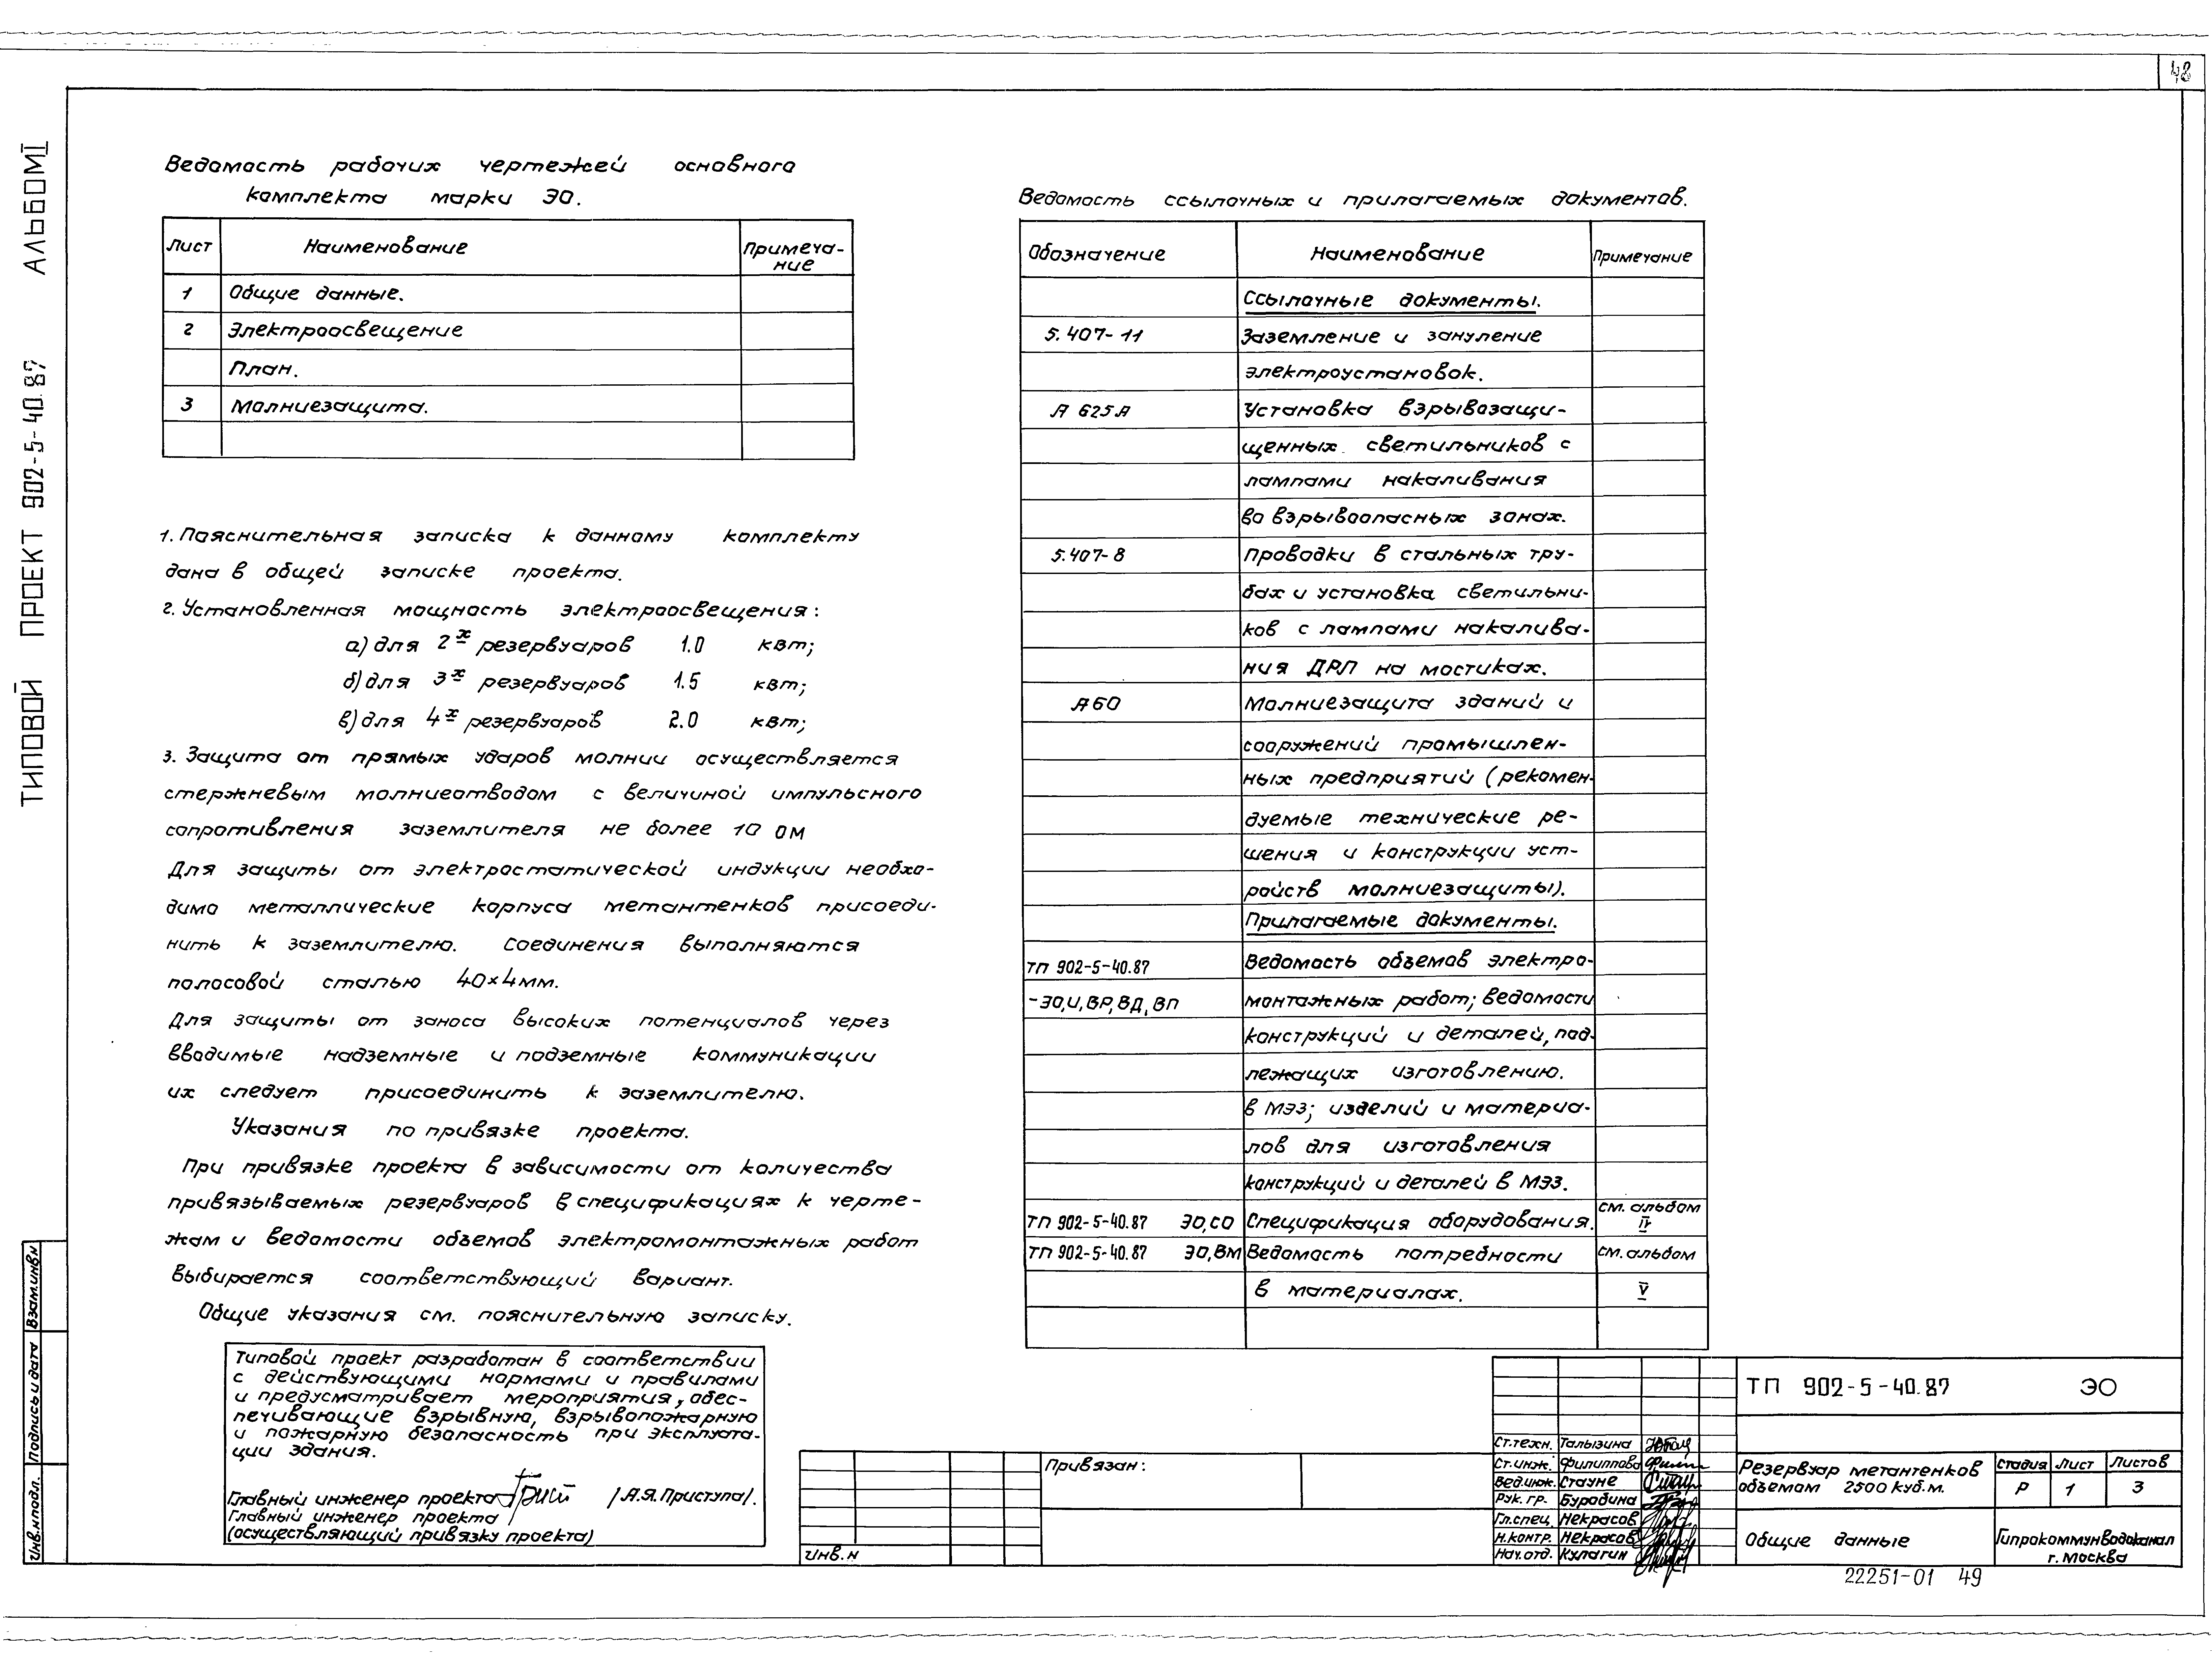 48
ТИПОВОЙ ПРОЕКТ 902-5-40.87 АЛЬБОМ I
Ведомость рабочих чертежей основного
комплекта марки ЭО.
Лист Наименование Примеча-
ние
1 Общие данные.
2 Электроосвещение
План.
3 Молниезащита.
1. Пояснительная записка к данному комплекту
дана в общей записке проекта.
2. Установленная мощность электроосвещения:
а) для 2х резервуаров 1.0 квт;
б) для 3х резервуаров 1.5 квт;
в) для 4х резервуаров 2.0 квт;
3. Защита от прямых ударов молнии осуществляется
стержневым молниеотводом с величиной импульсного
сопротивления заземлителя не более 10 ом
Для защиты от электростатической индукции необхо-
димо металлические корпуса метантенков присоеди-
нить к заземлителю. Соединения выполняются
полосовой сталью 40×4мм.
Для защиты от заноса высоких потенциалов через
вводимые надземные и подземные коммуникации
их следует присоединить к заземлителю.
Указания по привязке проекта.
При привязке проекта в зависимости от количества
привязываемых резервуаров в спецификациях к черте-
жам и ведомости объемов электромонтажных работ
выбирается соответствующий вариант.
Общие указания см. пояснительную записку.
Типовой проект разработан в соответствии
с действующими нормами и правилами
и предусматривает мероприятия, обес-
печивающие взрывную, взрывопожарную
и пожарную безопасность при эксплуата-
ции здания.
Главный инженер проекта /А.Я.Приступа/.
Главный инженер проекта
(осуществляющий привязку проекта)
Ведомость ссылочных и прилагаемых документов.
Обозначение Наименование Примечание
Ссылочные документы.
5.407-11 Заземление и зануление
электроустановок.
А 625А Установка взрывозащи-
щенных светильников с
лампами накаливания
во взрывоопасных зонах.
5.407-8 Проводки в стальных тру-
бах и установка светильни-
ков с лампами накалива-
ния ДРЛ на мостиках.
А60 Молниезащита зданий и
сооружений промышлен-
ных предприятий (рекомен-
дуемые технические ре-
шения и конструкции уст-
ройств молниезащиты).
Прилагаемые документы.
ТП 902-5-40.87 Ведомость объемов электро-
-ЭО,И,ВР,ВД,ВП монтажных работ; ведомости
конструкций и деталей, под-
лежащих изготовлению.
в МЭЗ; изделий и материа-
лов для изготовления
конструкций и деталей в МЭЗ.
ТП 902-5-40.87 ЭО,СО Спецификация оборудования. см. альбом
IV
ТП 902-5-40.87 ЭО,ВМ Ведомость потребности см. альбом
в материалах. V
Привязан:
Инв.н
Ст.техн. Талызина
Ст.инж. Филиппова
Вед.инж. Стауне
Рук. гр. Бурабина
Гл.спец. Некрасов
Н.контр. Некрасов
Нач.отд. Кулагин
ТП 902-5-40.87 ЭО
Резервуар метантенков
объемом 2500 куб.м.
Стадия Лист Листов
Р 1 3
Общие данные
Гипрокоммунводоканал
г. Москва
22251-01 49
Инв.н подл. Подпись и дата Взам.инв н